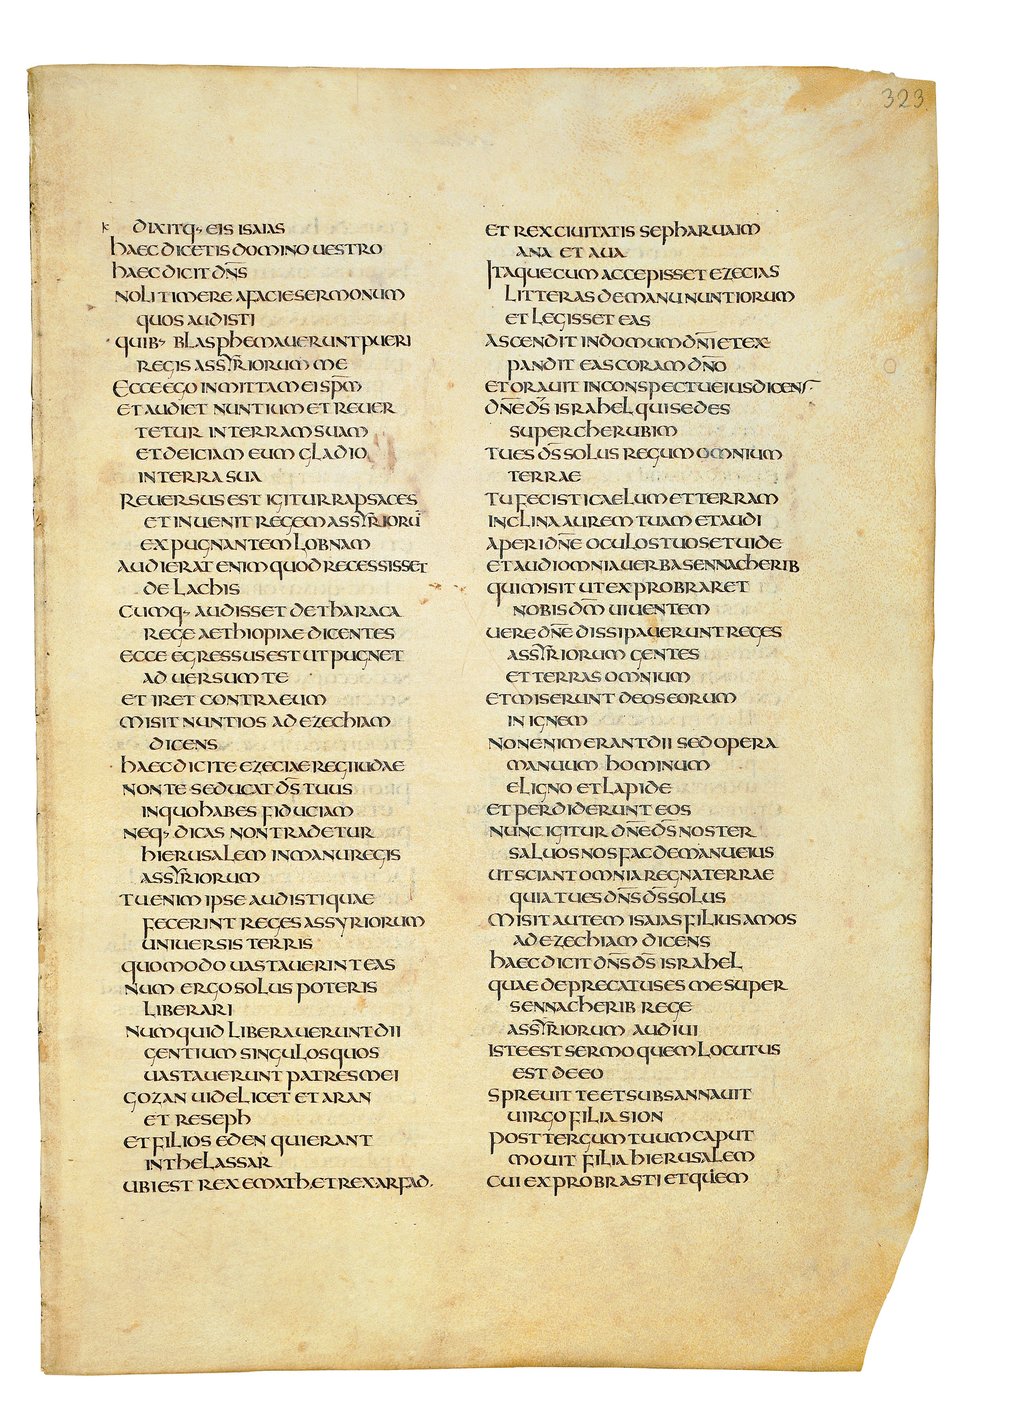 323
K DIXITQ· EIS ISAIAS
HAEC DICETIS DOMINO UESTRO
HAEC DICIT DN̅S
NOLI TIMERE A FACIE SERMONUM
QUOS AUDISTI
QUIB· BLASPHEMAUERUNT PUERI
REGIS ASSYRIORUM ME
ECCE EGO INMITTAM EI SPM̅
ET AUDIET NUNTIUM ET REUER
TETUR IN TERRAM SUAM
ET DEICIAM EUM GLADIO
IN TERRA SUA
REUERSUS EST IGITUR RAPSACES
ET INUENIT REGEM ASSYRIORU̅
EXPUGNANTEM LOBNAM
AUDIERAT ENIM QUOD RECESSISSET
DE LACHIS
CUMQ· AUDISSET DE THARACA
REGE AETHIOPIAE DICENTES
ECCE EGRESSUS EST UT PUGNET
ADUERSUM TE
ET IRET CONTRA EUM
MISIT NUNTIOS AD EZECHIAM
DICENS
HAEC DICITE EZECIAE REGI IUDAE
NON TE SEDUCAT DS̅ TUUS
IN QUO HABES FIDUCIAM
NEQ· DICAS NON TRADETUR
HIERUSALEM IN MANU REGIS
ASSYRIORUM
TU ENIM IPSE AUDISTI QUAE
FECERINT REGES ASSYRIORUM
UNIUERSIS TERRIS
QUOMODO UASTAUERINT EAS
NUM ERGO SOLUS POTERIS
LIBERARI
NUMQUID LIBERAUERUNT DII
GENTIUM SINGULOS QUOS
UASTAUERUNT PATRES MEI
GOZAN UIDELICET ET ARAN
ET RESEPH
ET FILIOS EDEN QUI ERANT
IN THELASSAR
UBI EST REX EMATH, ET REX ARFAD.
ET REX CIUITATIS SEPHARUAIM
ANA ET AUA
ITAQUE CUM ACCEPISSET EZECIAS
LITTERAS DE MANU NUNTIORUM
ET LEGISSET EAS
ASCENDIT IN DOMUM DN̅I ET EX
PANDIT EAS CORAM DN̅O
ET ORAUIT IN CONSPECTU EIUS DICENS
DN̅E DS̅ ISRAHEL QUI SEDES
SUPER CHERUBIM
TU ES DS̅ SOLUS REGUM OMNIUM
TERRAE
TU FECISTI CAELUM ET TERRAM
INCLINA AUREM TUAM ET AUDI
APERI DN̅E OCULOS TUOS ET UIDE
ET AUDI OMNIA UERBA SENNACHERIB
QUI MISIT UT EXPROBRARET
NOBIS DM̅ UIUENTEM
UERE DN̅E DISSIPAUERUNT REGES
ASSYRIORUM GENTES
ET TERRAS OMNIUM
ET MISERUNT DEOS EORUM
IN IGNEM
NON ENIM ERANT DII SED OPERA
MANUUM HOMINUM
E LIGNO ET LAPIDE
ET PERDIDERUNT EOS
NUNC IGITUR DN̅E DS̅ NOSTER
SALUOS NOS FAC DE MANU EIUS
UT SCIANT OMNIA REGNA TERRAE
QUIA TU ES DN̅S DS̅ SOLUS
MISIT AUTEM ISAIAS FILIUS AMOS
AD EZECHIAM DICENS
HAEC DICIT DN̅S DS̅ ISRAHEL
QUAE DEPRECATUS ES ME SUPER
SENNACHERIB REGE
ASSYRIORUM AUDIUI
ISTE EST SERMO QUEM LOCUTUS
EST DE EO
SPREUIT TE ET SUBSANNAUIT
UIRGO FILIA SION
POST TERGUM TUUM CAPUT
MOUIT FILIA HIERUSALEM
CUI EXPROBRASTI ET QUEM